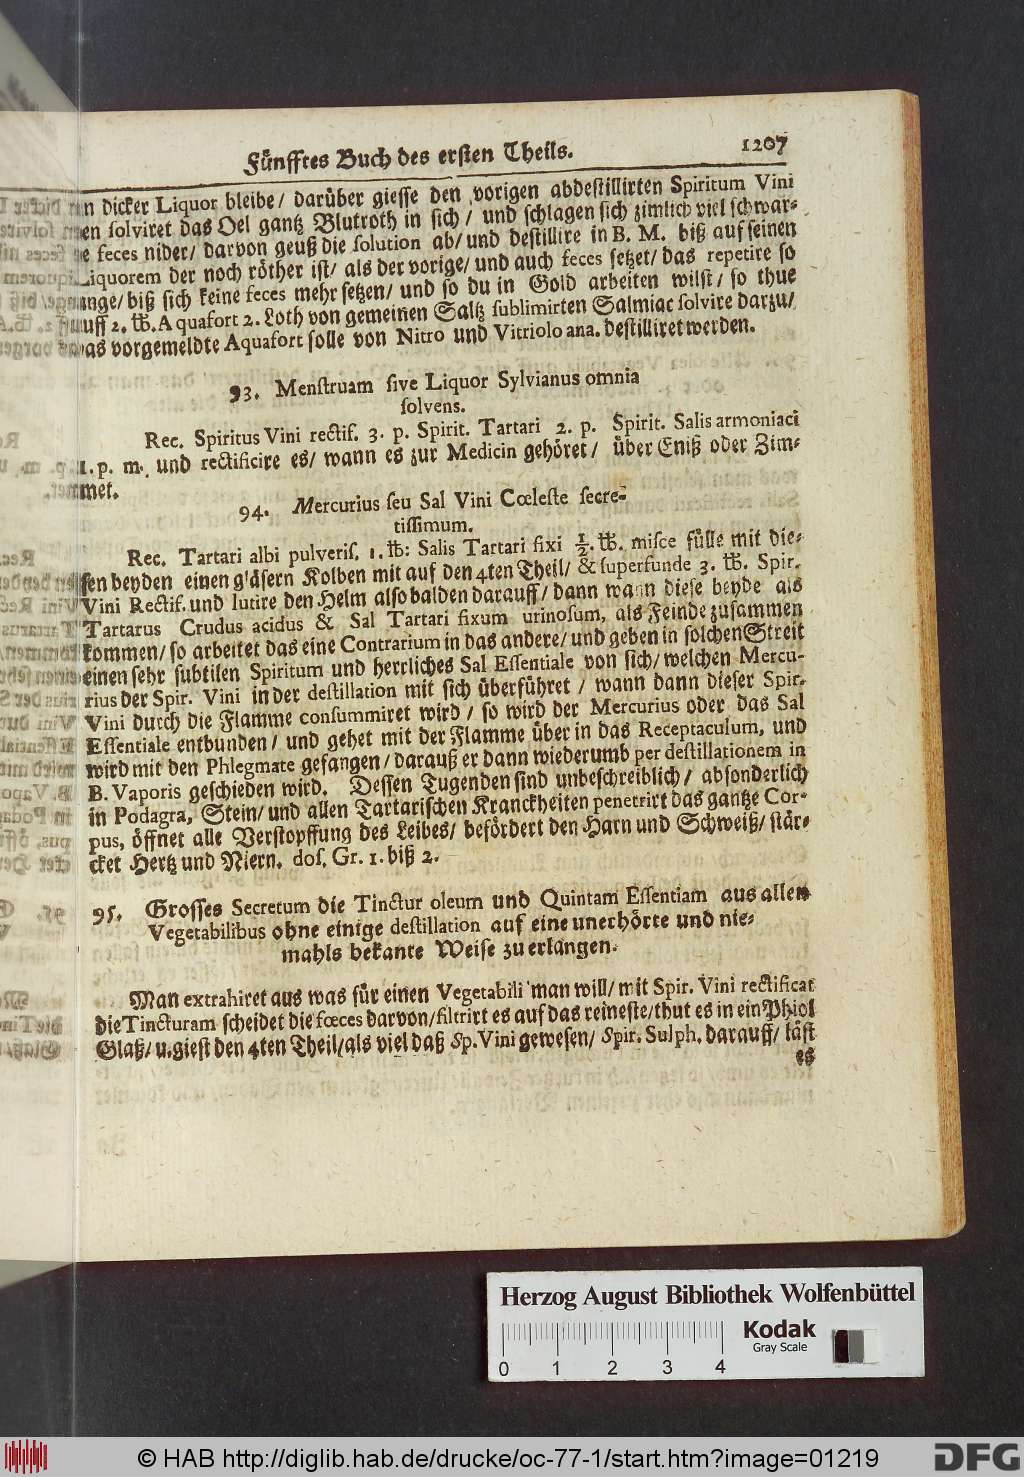 Fünfftes Buch des ersten Theils. 1207
n dicker Liquor bleibe/ darüber giesse den vorigen abdestillirten Spiritum Vini
en solviret das Oel gantz Blutroth in sich/ und schlagen sich zimlich viel schwar-
e feces nider/ darvon geuß die solution ab/ und destillire in B. M. biß auf seinen
Liquorem der noch röther ist/ als der vorige/ und auch feces setzet/ das repetire so
ange/ biß sich keine feces mehr setzen/ und so du in Gold arbeiten wilst/ so thue
uff 2. ℔. Aquafort 2. Loth von gemeinen Saltz sublimirten Salmiac solvire darzu/
as vorgemeldte Aquafort solle von Nitro und Vitriolo ana. destilliret werden.
93. Menstruam sive Liquor Sylvianus omnia
solvens.
Rec. Spiritus Vini rectif. 3. p. Spirit. Tartari 2. p. Spirit. Salis armoniaci
1. p. m. und rectificire es/ wann es zur Medicin gehöret/ über Eniß oder Zim-
met.
94. Mercurius seu Sal Vini Cœleste secre-
tissimum.
Rec. Tartari albi pulveris. 1. ℔: Salis Tartari fixi ½. ℔. misce fülle mit die-
sen beyden einen gläsern Kolben mit auf den 4ten Theil/ & superfunde 3. ℔. Spir.
Vini Rectif. und lutire den Helm alsobalden darauff/ dann wann diese beyde als
Tartarus Crudus acidus & Sal Tartari fixum urinosum, als Feinde zusammen
kommen/ so arbeitet das eine Contrarium in das andere/ und geben in solchen Streit
einen sehr subtilen Spiritum und herrliches Sal Essentiale von sich/ welchen Mercu-
rius der Spir. Vini in der destillation mit sich überführet / wann dann dieser Spir.
Vini durch die Flamme consummiret wird / so wird der Mercurius oder das Sal
Essentiale entbunden/ und gehet mit der Flamme über in das Receptaculum, und
wird mit den Phlegmate gefangen/ darauß er dann wiederumb per destillationem in
B. Vaporis geschieden wird. Dessen Tugenden sind unbeschreiblich/ absonderlich
in Podagra, Stein/ und allen Tartarischen Kranckheiten penetrirt das gantze Cor-
pus, öffnet alle Verstopffung des Leibes/ befördert den Harn und Schweiß/ stär-
cket Hertz und Niern. dos. Gr. 1. biß 2.
95. Grosses Secretum die Tinctur oleum und Quintam Essentiam aus allen
Vegetabilibus ohne einige destillation auf eine unerhörte und nie-
mahls bekante Weise zu erlangen.
Man extrahiret aus was für einen Vegetabili man will/ mit Spir. Vini rectificat
die Tincturam scheidet die fœces darvon/ filtrirt es auf das reineste/ thut es in ein Phiol
Glaß/ u. giest den 4ten Theil/ als viel daß Sp. Vini gewesen/ Spir. Sulph. darauff/ läst
es
Herzog August Bibliothek Wolfenbüttel
Kodak
Gray Scale
0 1 2 3 4
© HAB http://diglib.hab.de/drucke/oc-77-1/start.htm?image=01219
DFG